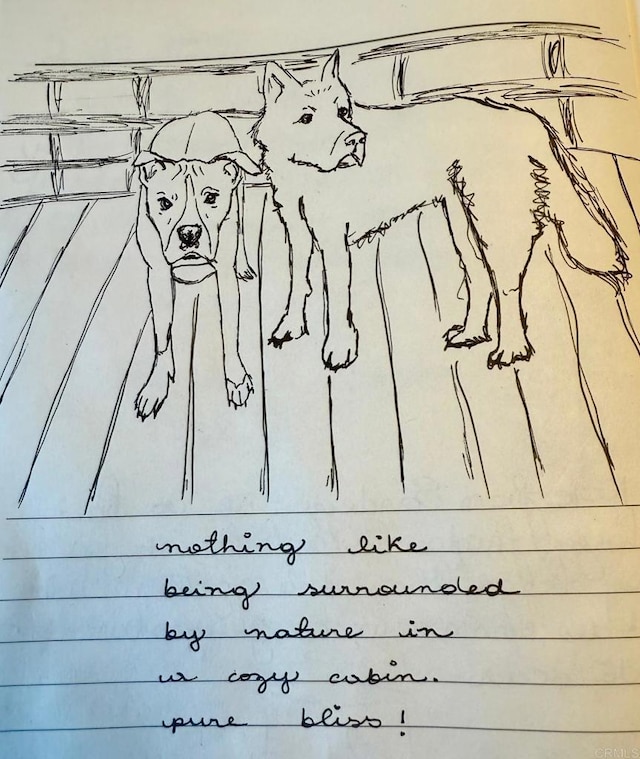 nothing like
being surrounded
by nature in
ur cozy cabin.
pure bliss!
CRMLS